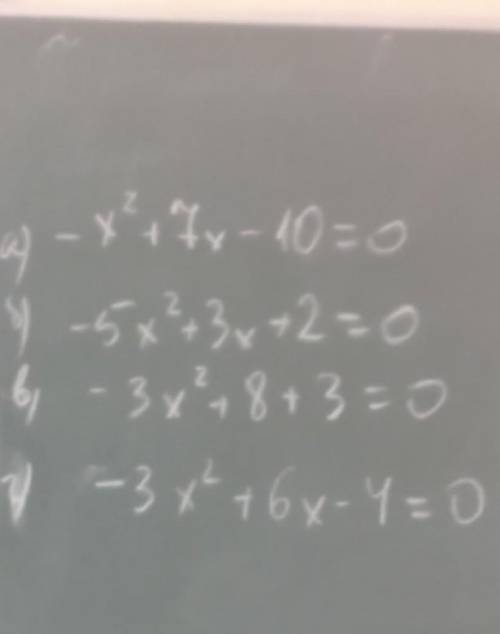 а) -x² + 7x - 10 = 0
б) -5x² + 3x + 2 = 0
в) -3x² + 8 + 3 = 0
г) -3x² + 6x - 4 = 0